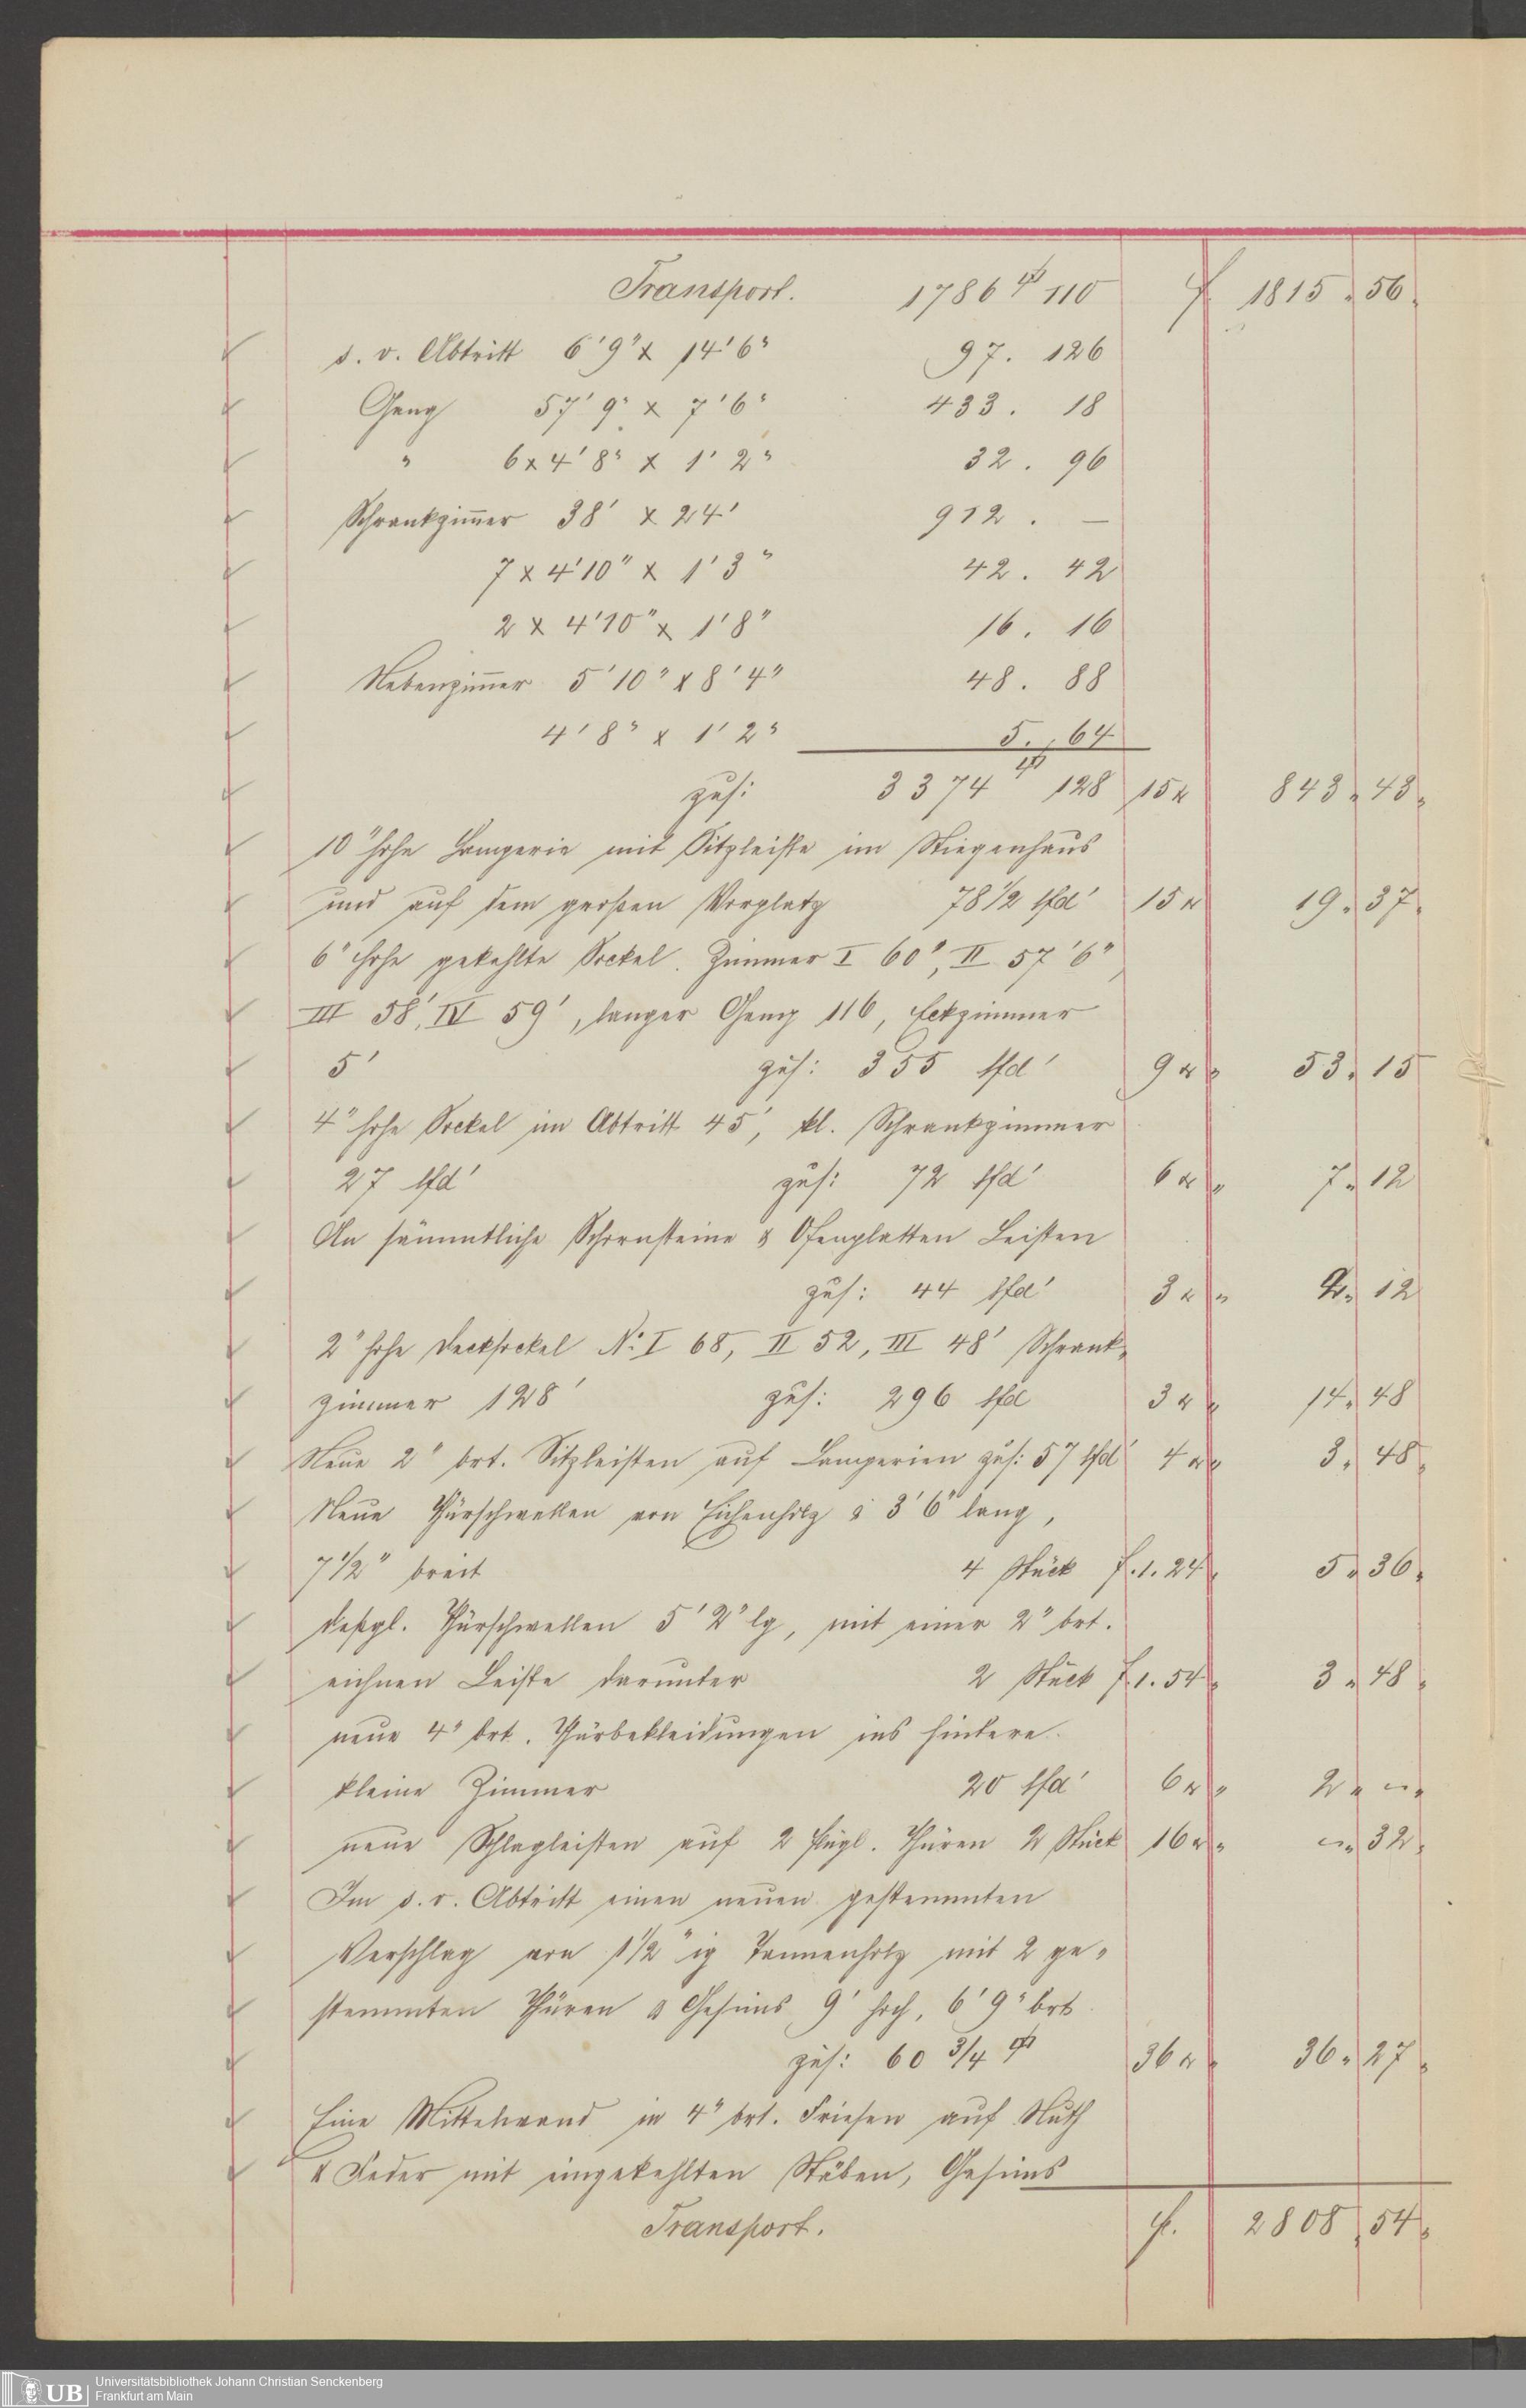 Transport. 1786 110 f 1815 . 56.
s. v. Abtritt 6'9" x 14'6" 97. 126
Gang 57'9" x 7'6" 433. 18
" 6 x 4'8" x 1'2" 32. 96
Schrankzimmer 38' x 24' 912. —
7 x 4'10" x 1'3" 42. 42
2 x 4'10" x 1'8" 16. 16
Nebenzimmer 5'10" x 8'4" 48. 88
4'8" x 1'2" 5. 64
zus: 3374 128 15 x 843 " 43 "
10" hohe Lamperie mit Sitzleiste im Stiegenhaus
und auf dem großen Vorplatz 78 1/2 lfd' 15 x 19 " 37 "
6" hohe gekehlte Sockel. Zimmer I 60", II 57'6"
III 58', IV 59', langer Gang 116, Eckzimmer
5' zus: 355 lfd' 9 x " 53 " 15
4" hohe Sockel im Abtritt 45', kl. Schrankzimmer
27 lfd' zus: 72 lfd' 6 x " 7 " 12
An sämmtliche Schornsteine & Ofenplatten Leisten
zus: 44 lfd' 3 x " 2 " 12
2" hohe Decksockel No: I 68, II 52, III 48' Schrank-
zimmer 128' zus: 296 lfd 3 x " 14 " 48
Neue 2" brt. Sitzleisten auf Lamperien zus: 57 lfd' 4 x " 3 " 48 "
Neue Thürschwellen von Eichenholz à 3'6" lang,
7 1/2" breit 4 Stück f. 1. 24 " 5 " 36 "
deßgl. Thürschwellen 5'2" lg, mit einer 2" brt.
eichnen Leiste darunter 2 Stück f. 1. 54 " 3 " 48 "
neue 4" brt. Thürbekleidungen ins hintere
kleine Zimmer 20 lfd' 6 x " 2 " — "
neue Schlagleisten auf 2 flügl. Thüren 2 Stück 16 x " — " 32 "
Im s. v. Abtritt einen neuen gestemmten
Verschlag von 1 1/2" ig Tannenholz mit 2 ge-
stemmten Thüren & Gesims 9' hoch, 6'9" brt
zus: 60 3/4 36 x " 36 " 27 "
Eine Mittelwand in 4" brt. Friesen auf Nuth
& Feder mit eingekehlten Stäben, Gesims
Transport. f. 2808 " 54 "
UB
Universitätsbibliothek Johann Christian Senckenberg
Frankfurt am Main